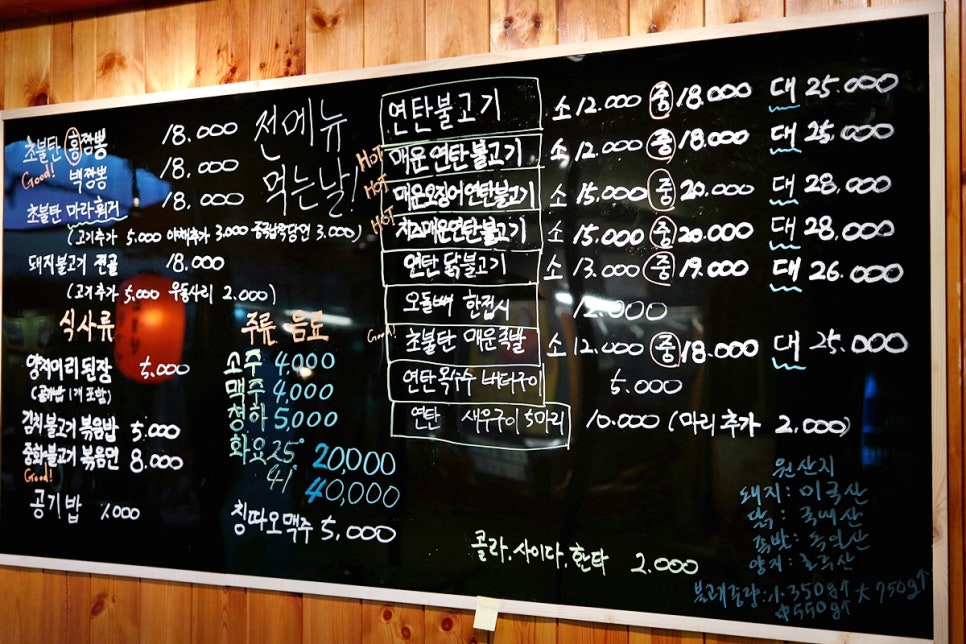 초불탄 홍짬뽕 18.000
Good!
백짬뽕 18.000
초불탄 마라훠거 18.000
(고기추가 5.000 야채추가 3.000 중국당면 3.000)
돼지불고기 전골 18.000
(고기추가 5.000 우동사리 2.000)
전메뉴
먹는날!
식사류
양지머리 된장 5.000
(공기밥 1개 포함)
김치불고기 볶음밥 5.000
중화불고기 볶음면 8.000
Good!
공기밥 1.000
주류 음료
소주 4,000
맥주 4,000
청하 5,000
화요 25° 20,000
41° 40,000
칭따오맥주 5,000
연탄불고기 소 12.000 중 18.000 대 25.000
HOT 매운 연탄불고기 소 12.000 중 18.000 대 25.000
HOT 매운오징어연탄불고기 소 15.000 중 20.000 대 28.000
HOT 치즈매운연탄불고기 소 15.000 중 20.000 대 28.000
연탄 닭불고기 소 13.000 중 19.000 대 26.000
오돌뼈 한접시 12.000
Good! 초불탄 매운족발 소 12.000 중 18.000 대 25.000
연탄 옥수수 버터구이 5.000
연탄 새우구이 5마리 10.000 (마리추가 2.000)
콜라, 사이다, 환타 2.000
원산지
돼지: 미국산
닭: 국내산
족발: 독일산
양지: 호주산
불고기중량: 小 350g↑ 大 750g↑
中 550g↑